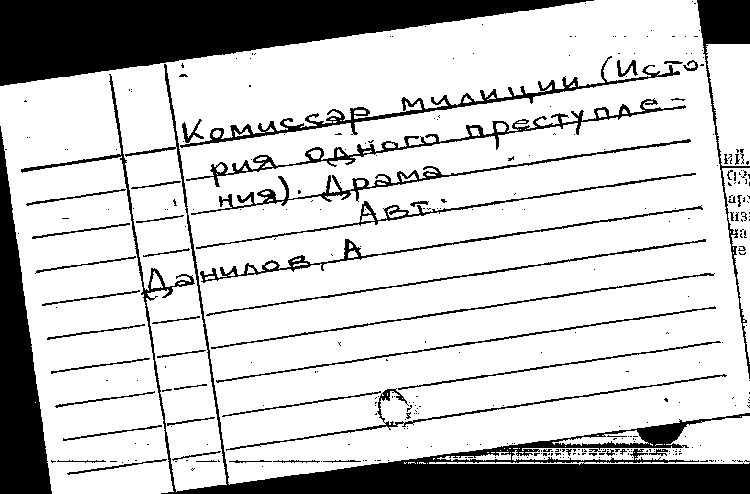 Комиссар милиции (Исто-
рия одного преступле-
ния). Драма
Авт.
Данилов, А